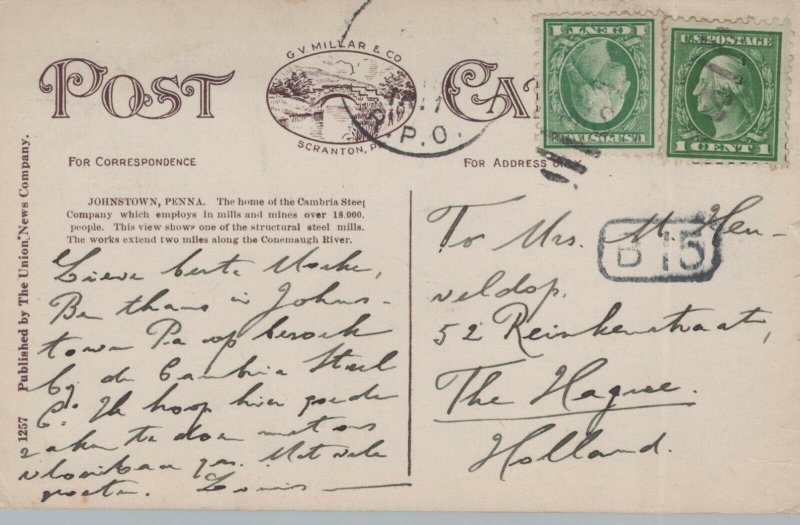 POST CA
G.V. MILLAR & CO
SCRANTON, P
P. P.O.
ONE CENT
U.S. POSTAGE
U.S. POSTAGE
1 CENT
FOR CORRESPONDENCE
FOR ADDRESS ONLY
1257 Published by The Union News Company.
JOHNSTOWN, PENNA. The home of the Cambria Steel
Company which employs in mills and mines over 18.000.
people. This view shows one of the structural steel mills.
The works extend two miles along the Conemaugh River.
Lieve beste Moeke,
Ben thans in Johns-
town Pa op bezoek
by de Cambria Steel
Co. Ik hoop hier goede
zaken te doen met ons
Met vele
groeten. Louis
B 15
To Mrs. M. Heu-
veldop.
52 Reinkenstraat,
The Hague.
Holland.